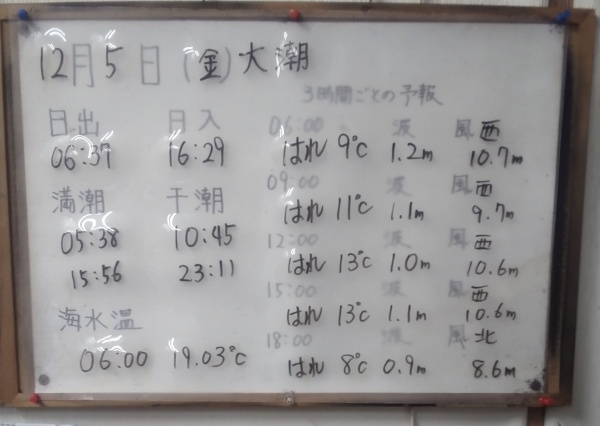 12月5日(金)大潮
日出 日入
06:37 16:29
満潮 干潮
05:38 10:45
15:56 23:11
海水温
06:00 19.03℃
3時間ごとの予報
06:00 波 風 西
はれ 9℃ 1.2m 10.7m
09:00 波 風 西
はれ 11℃ 1.1m 9.7m
12:00 波 風 西
はれ 13℃ 1.0m 10.6m
15:00 波 風 西
はれ 13℃ 1.1m 10.6m
18:00 波 風 北
はれ 8℃ 0.9m 8.6m